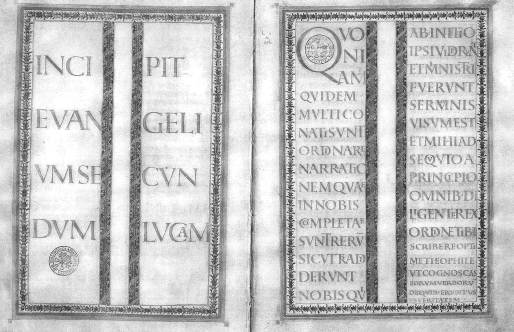 INCI PIT
EVAN GELI
VMSE CVN
DVM LVCAM
QVO
NI
AM
QVIDEM
MVLTICO
NATISVNT
ORDINARE
NARRATIO
NEMQVAE
INNOBIS
COMPLETAE
SVNTRERV
SICVTRAD
DERVNT
NOBISQVI
ABINITIO
IPSIVIDRN
ETMINISTRI
FVERVNT
SERMNIS
VISVMEST
ETMIHIAD
SEQVTOA
PRINCIPIO
OMNIBDI
LIGENTEREX
ORDNETIBI
SCRIBEREOPTI
METHEOPHILE
VTCOGNOSCAS
EORVMVERBORV
DEQVIBERVDITVS
ESVERITATEM